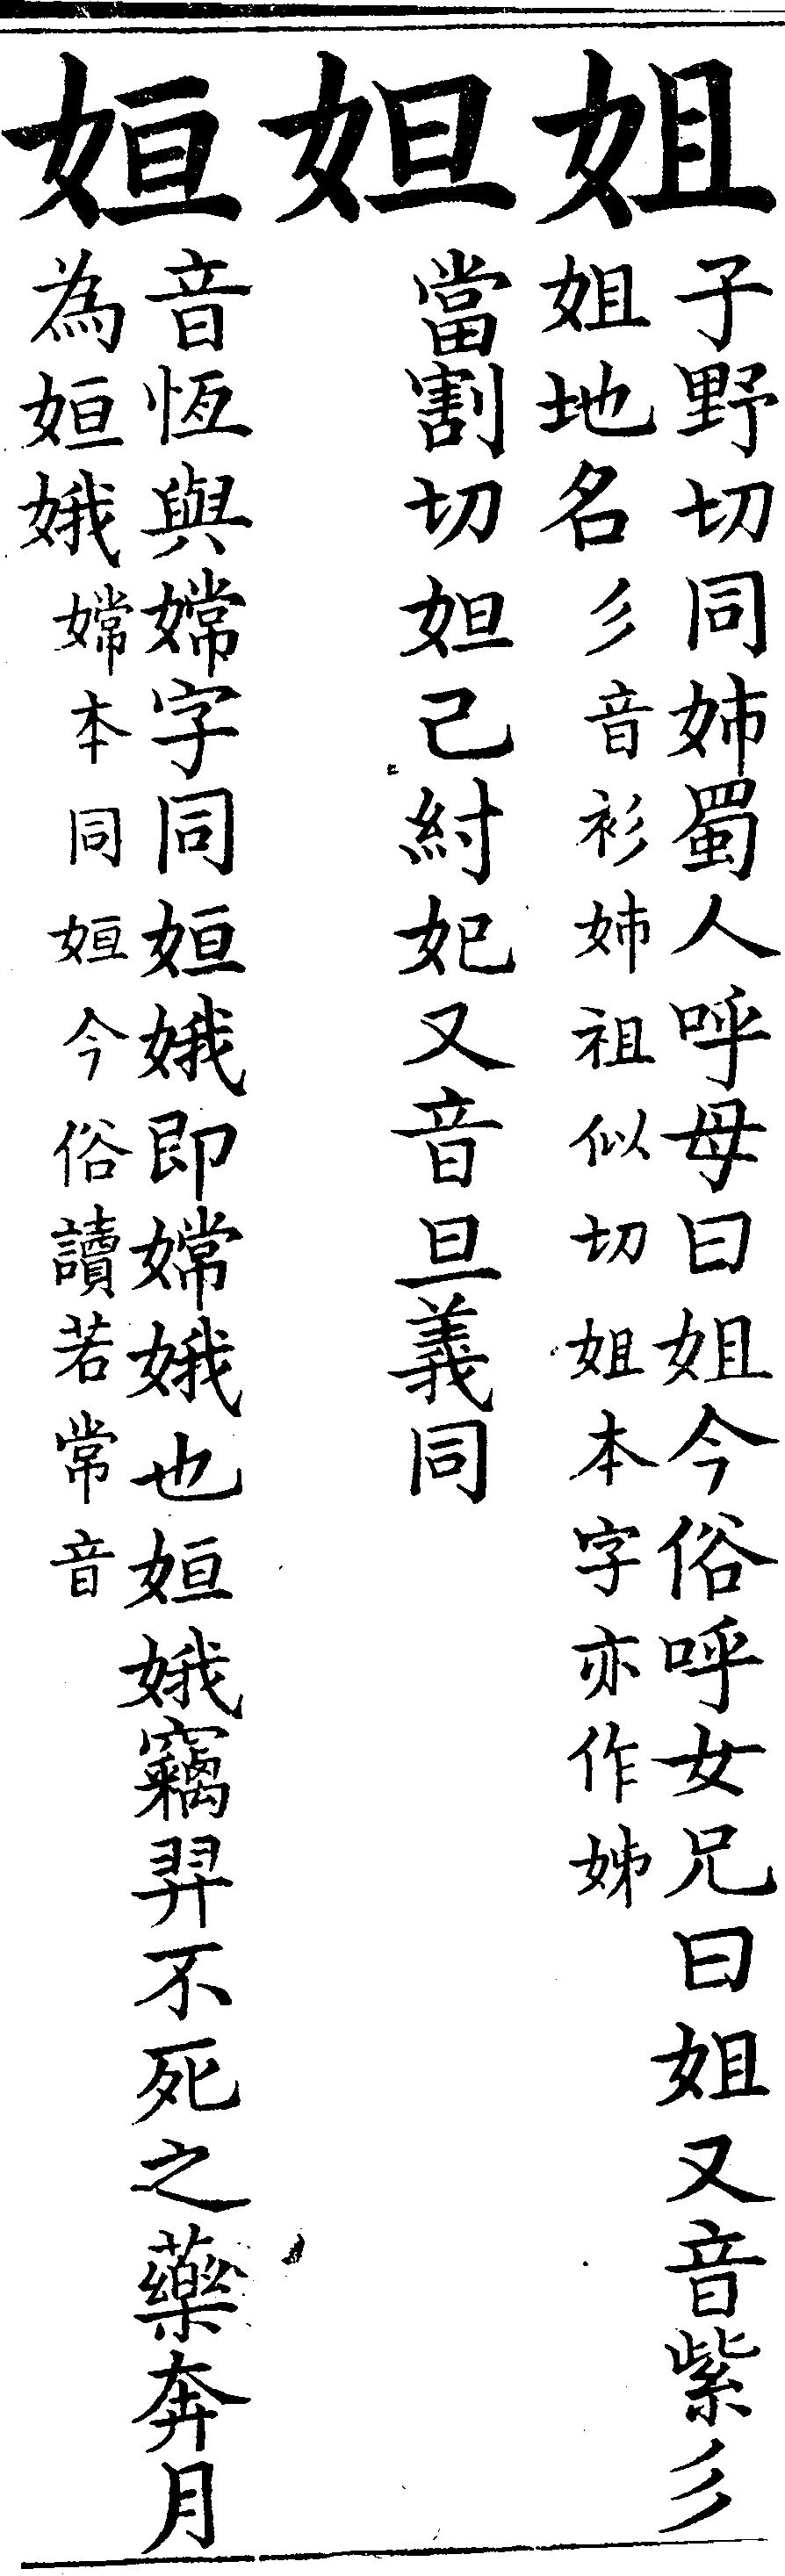 姐
子野切同姊蜀人呼母曰姐今俗呼女兄曰姐又音紫彡
姐地名彡音衫姊祖似切姐本字亦作姊
妲
當割切妲己紂妃又音旦義同
姮
音恆與嫦字同姮娥即嫦娥也姮娥竊羿不死之藥奔月
為姮娥嫦本同姮今俗讀若常音